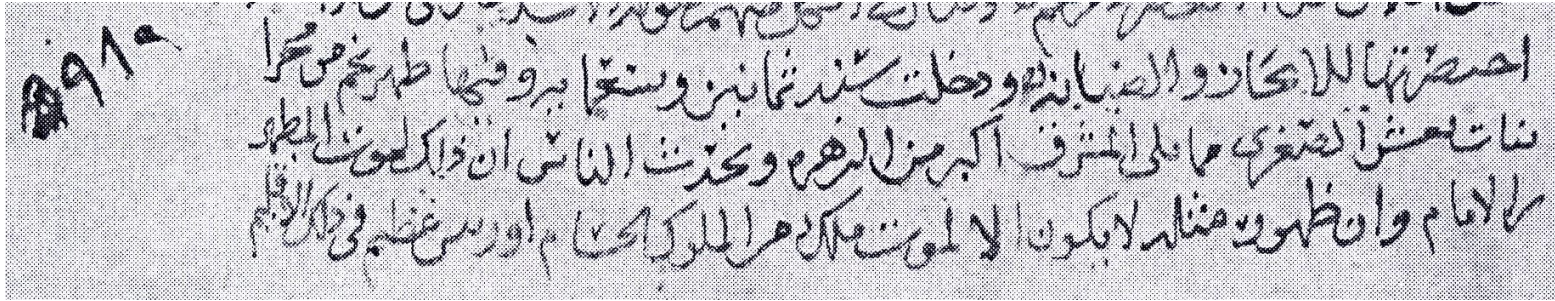 ٩٨٠
اختصرتها للايجاز والصيانه ودخلت سنه ثمانين وتسعمايه وفيها ظهر نجم من مجرا
بنات نعش الصغرى مما يلى المشرق اكبر من الزهره وتحدث الناس ان ذلك لموت المطهر
بن الامام وان ظهور مثله لا يكون الا لموت ملك من الملوك او رئيس عظيم فى ذلك الاقليم